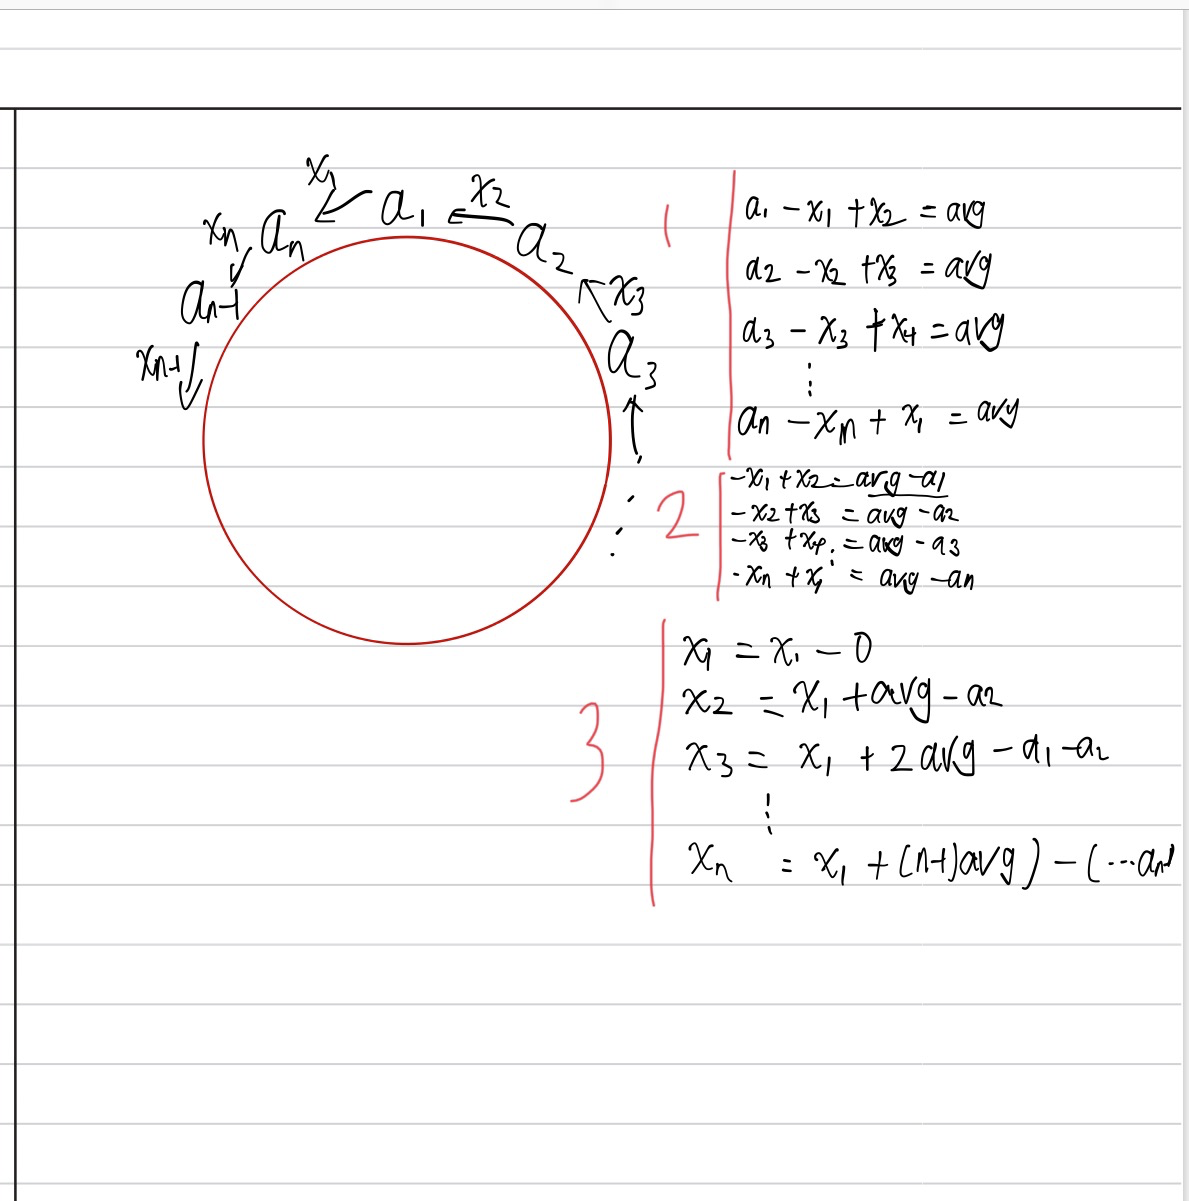 x₁
x₂
xₙ
aₙ
a₁
a₂
aₙ₋₁
x₃
xₙ₋₁
a₃
1
a₁ - x₁ + x₂ = avg
a₂ - x₂ + x₃ = avg
a₃ - x₃ + x₄ = avg
⋮
aₙ - xₙ + x₁ = avg
2
-x₁ + x₂ = avg - a₁
-x₂ + x₃ = avg - a₂
-x₃ + x₄ = avg - a₃
⋮
-xₙ + x₁ = avg - aₙ
3
x₁ = x₁ - 0
x₂ = x₁ + avg - a₂
x₃ = x₁ + 2avg - a₁ - a₂
⋮
xₙ = x₁ + (n-1)avg) - (…aₙ₋₁